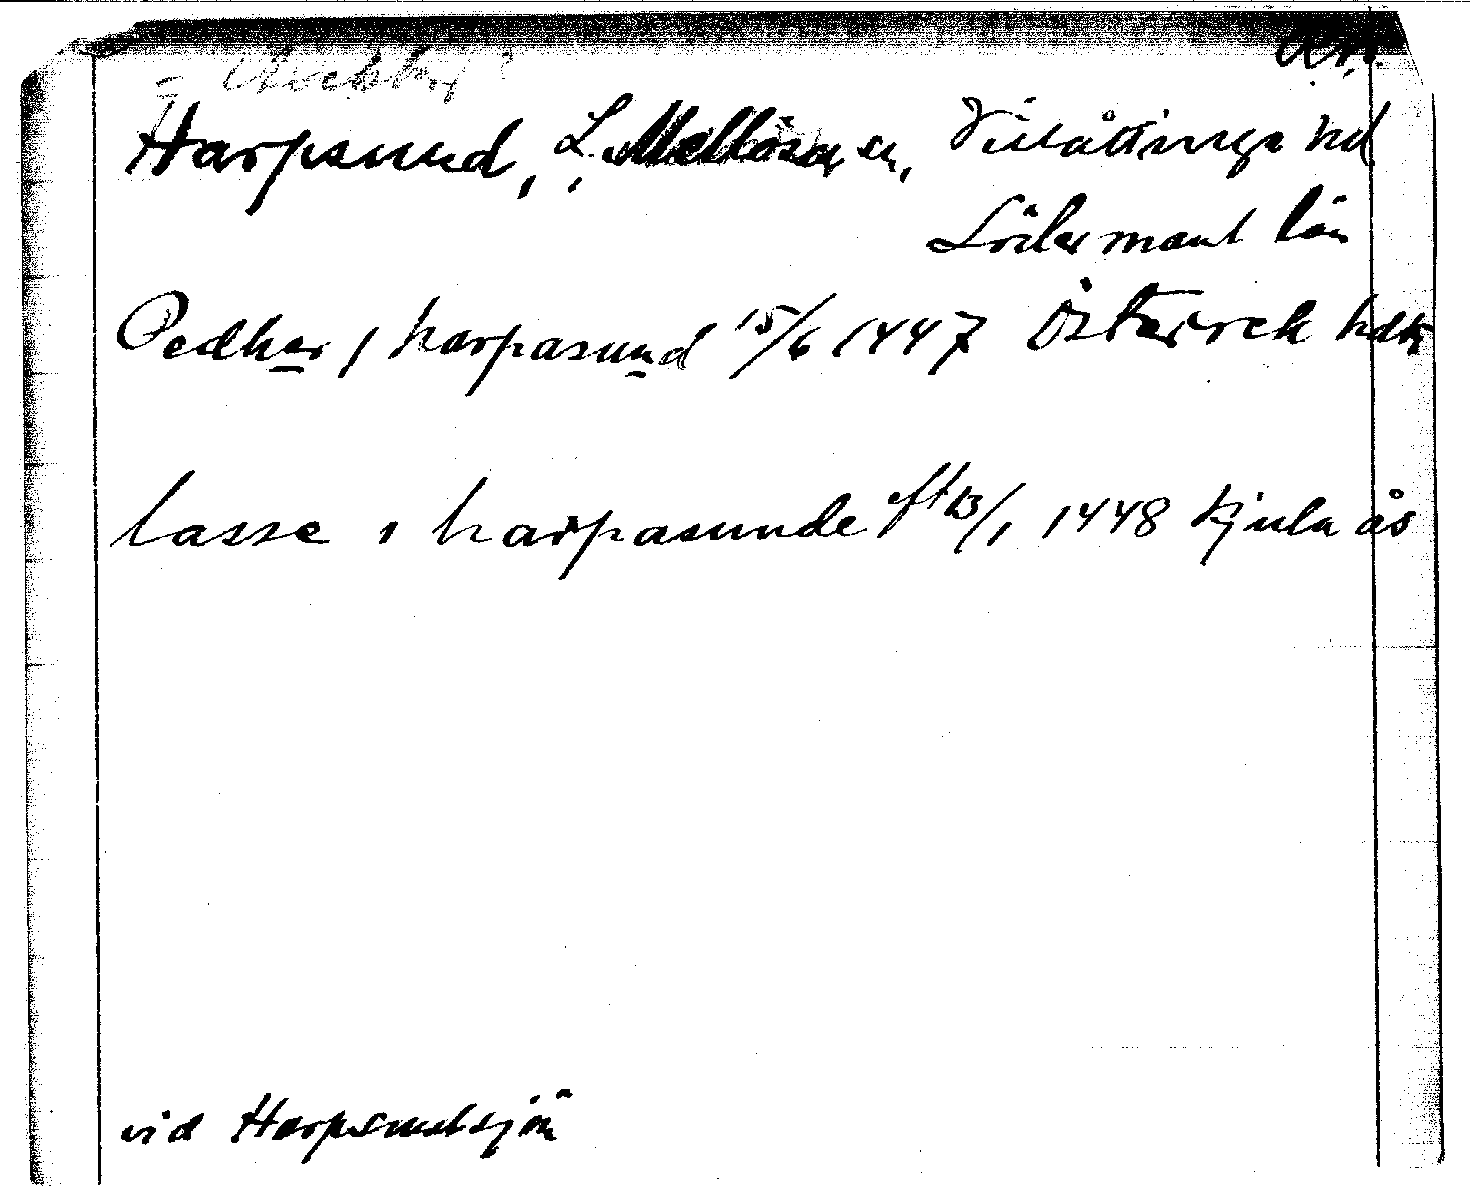 Harpsund, L. Mellösa sn, Villåttinge hd
Södermanl län
Pedher i harpasund 15/6 1447 Österreh hdk
lasse i harpasunde eft 13/1 1448 Kjula ås
vid Harpsundsjön